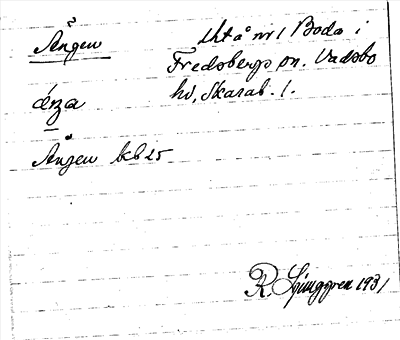 Ängen
Utå nr 1 Boda i
Fredsbergs sn. Vadsbo
hd, Skarab. l.
ä́ŋa
Ängen kb 25
R. Ljunggren 1931